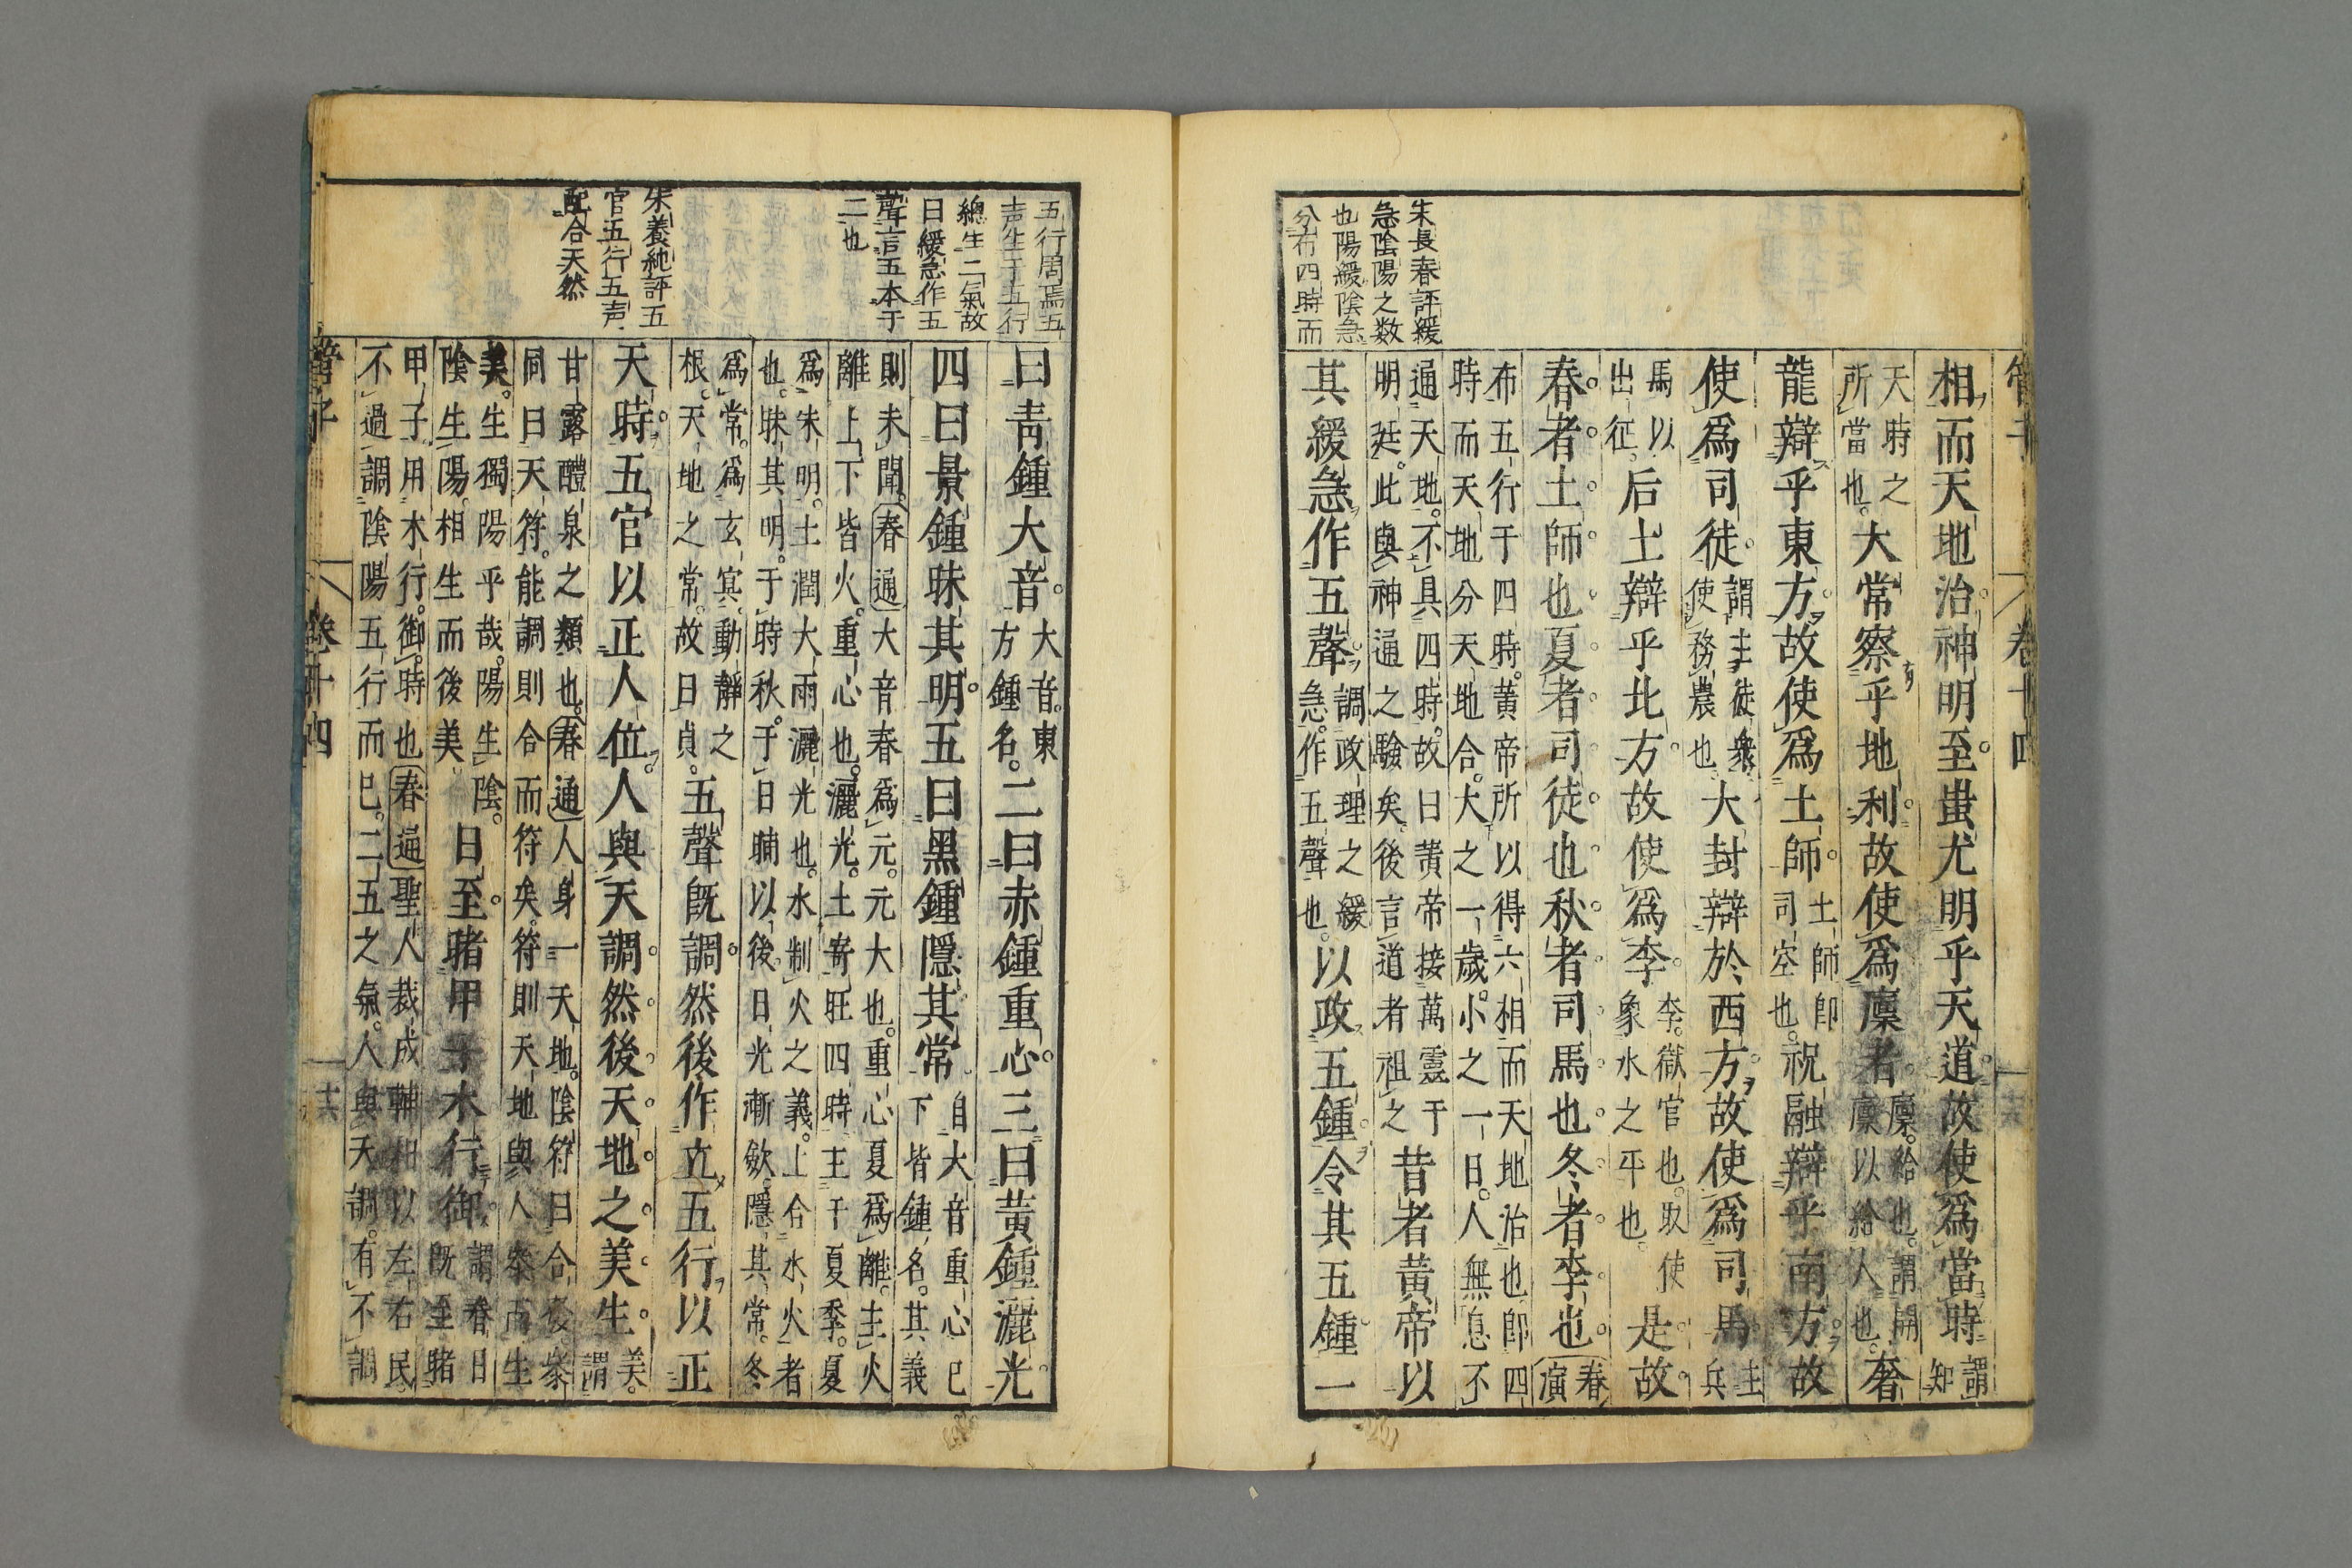 朱長春評緩
急陰陽之数
也陽緩陰急
分布四時而
管子
卷十四
相而天地治神明至蚩尤明乎天道故使爲當時謂
知
天時之
所當也大常察乎地利故使爲廩者廩給也謂開
廩以給人也奢
龍辯乎東方故使爲土師土師即
司空也祝融辯乎南方故
使爲司徒謂主徒衆
使務農也大封辯於西方故使爲司馬主
兵
馬以
出征后土辯乎北方故使爲李李獄官也取使
象水之平也是故
春者土師也夏者司徒也秋者司馬也冬者李也春
演
布五行于四時黄帝所以得六相而天地治也即四
時而天地分天地合大之一歲小之一日人無息不
通天地不具四時故曰黄帝接萬靈于
明廷此與神通之驗矣後言道者祖之昔者黄帝以
其緩急作五聲調政理之緩
急作五聲也以政五鍾令其五鍾一
五行周焉五
声生于五行
總生二氣故
曰緩急作五
聲言五本于
二也
朱養純評五
官五行五声
配合天然
曰青鍾大音大音東
方鍾名二曰赤鍾重心三曰黄鍾灑光
四曰景鍾昧其明五曰黑鍾隱其常自大音重心已
下皆鍾名其義
則未聞春通大音春爲元元大也重心夏爲離主火
離上下皆火重心也灑光土寄旺四時主于夏季夏
爲朱明土潤大雨灑光也水制火之義上合水火者
也昧其明于時秋于日晡以後日光漸歛隱其常冬
爲常爲玄冥動靜之
根天地之常故曰貞五聲既調然後作立五行以正
天時五官以正人位人與天調然後天地之美生美
謂
甘露醴泉之類也春通人身一天地陰符曰合發叅
同曰天符能調則合而符矣符則天地與人叅而生
美生獨陽乎哉陽生陰
陰生陽相生而後美日至睹甲子木行御謂春日
既至睹
甲子用木行御時也春通聖人裁成輔相以左右民
不過調陰陽五行而已二五之氣人與天調有不調
管子
卷十四